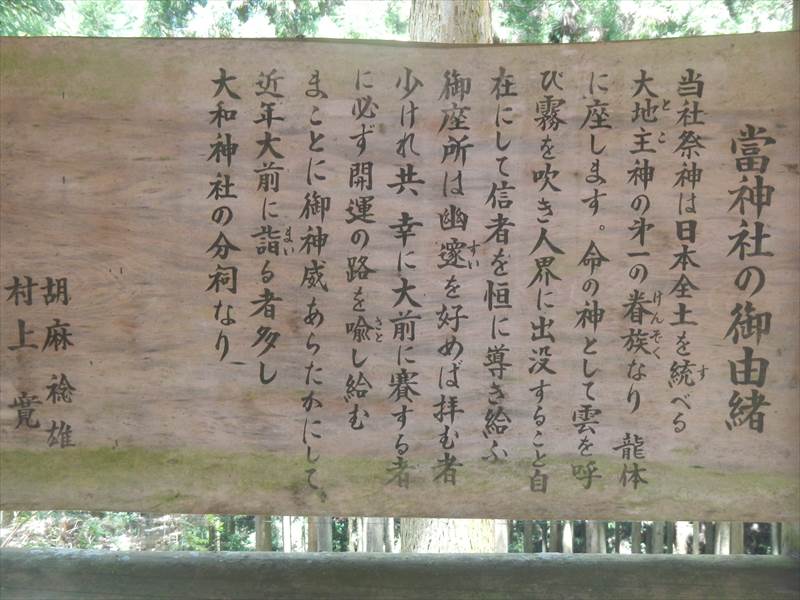 當神社の御由緒
当社祭神は日本全土を統べる
大地主神の才一の眷族なり 龍体
に座します。命の神として雲を呼
び霧を吹き人界に出没すること自
在にして信者を恒に導き給ふ
御座所は幽邃を好めば拝む者
少けれ共 幸に大前に賽する者
に必ず開運の路を喩し給む
まことに御神威あらたかにして
近年大前に詣る者多し
大和神社の分祠なり
胡麻 稔雄
村上 覚